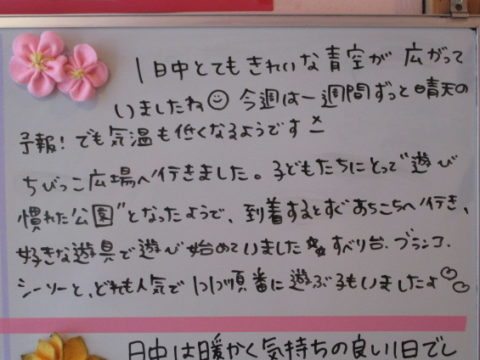 1日中とてもきれいな青空が広がって
いましたね 今週は一週間ずっと晴天の
予報!でも気温も低くなるようです
ちびっこ広場へ行きました。子どもたちにとって"遊び
慣れた公園"となったようで、到着するとすぐあちこちへ行き、
好きな遊具で遊び始めていました すべり台、ブランコ、
シーソーと、どれも人気で 順番に遊ぶ子もいましたよ
日中は暖かく気持ちの良い1日でし